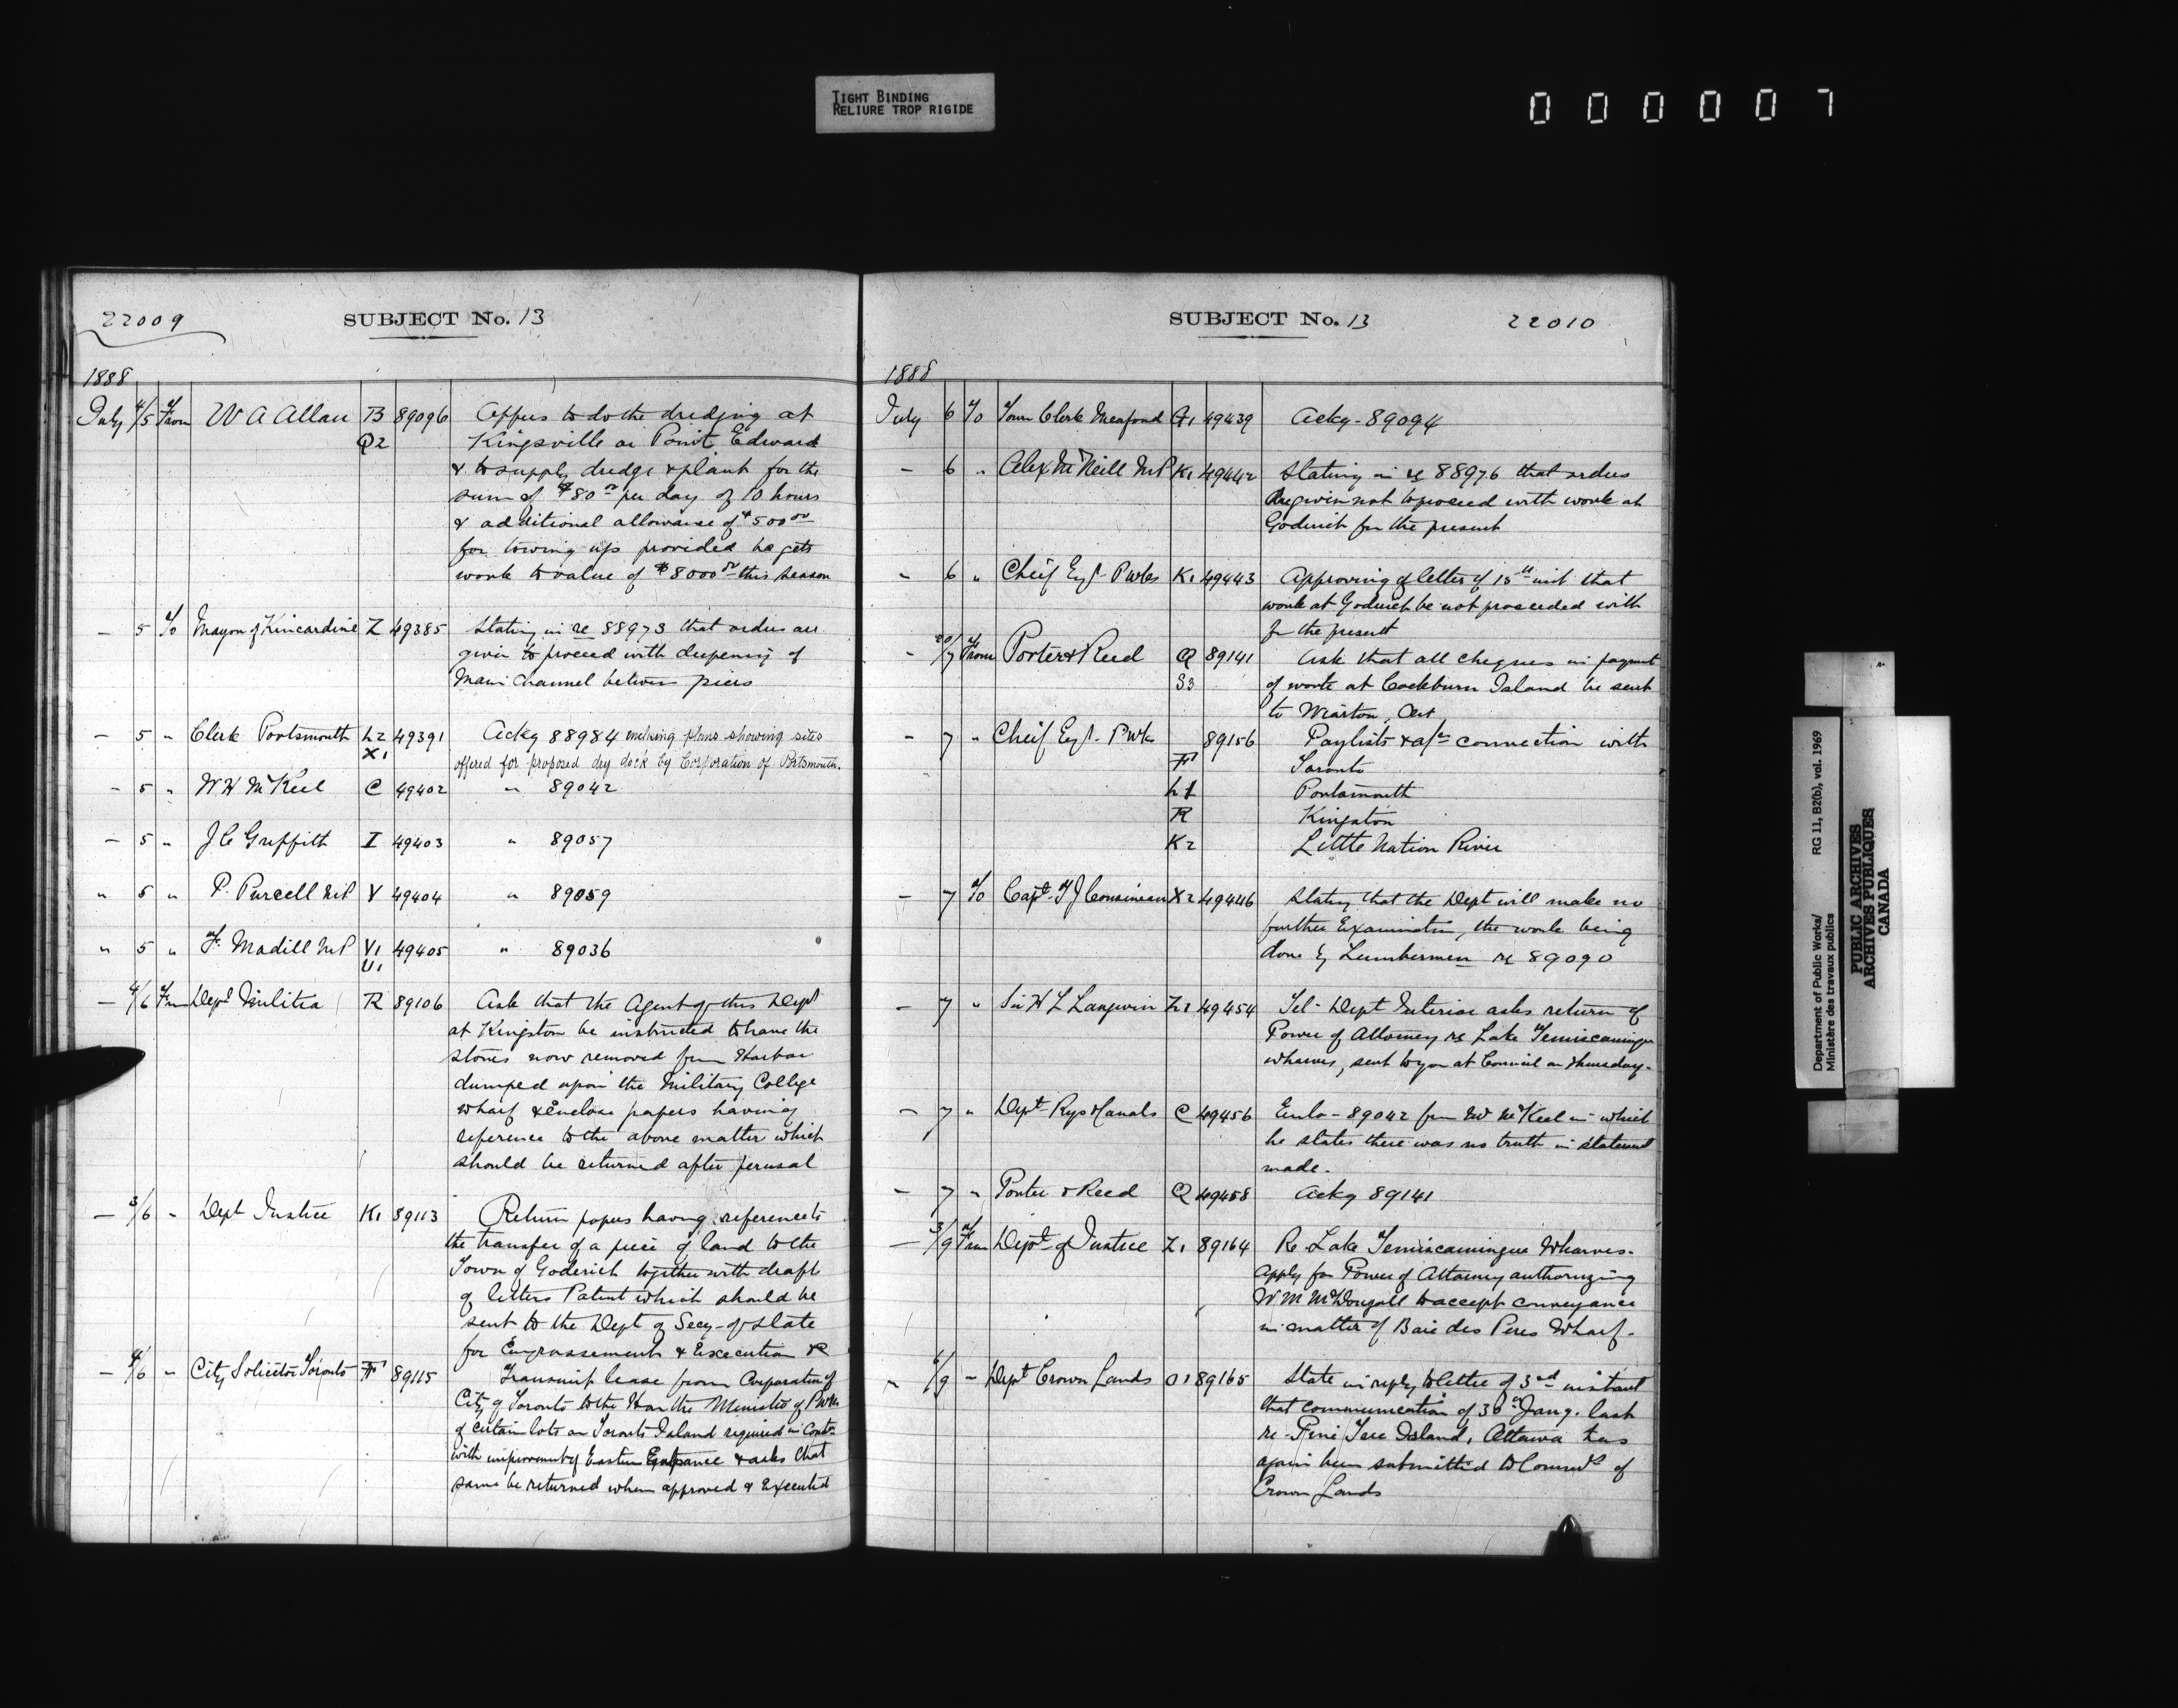 TIGHT BINDING
RELIURE TROP RIGIDE
000007
22009
SUBJECT No. 13
1888
July 4/5 From W A Allan B 89096 Offers to do the dredging at
Q2 Kingsville or Point Edward
& to supply dredge & plant for the
sum of $80 00 per day of 10 hours
& additional allowance of $500 00
for towing up provided he gets
work to value of $8000 00 this season
— 5 To Mayor of Kincardine Z 49385 Stating in re 88973 that orders are
given to proceed with deepening of
Main Channel between piers
— 5 " Clerk Portsmouth L2 49391 Ackg 88984 enclosing plans showing sites
X1 offered for proposed dry dock by Corporation of Portsmouth.
— 5 " W H McKeel C 49402 " 89042
— 5 " J C Griffith I 49403 " 89057
" 5 " P. Purcell MP V 49404 " 89059
" 5 " F. Madill MP V1 49405 " 89036
U1
— 4/6 From Dept Militia R 89106 Ask that the Agent of this Dept
at Kingston be instructed to have the
stones now removed from Harbor
dumped upon the Military College
wharf & Enclose papers having
reference to the above matter which
should be returned after perusal
— 3/6 " Dept Justice K1 89113 Return papers having reference to
the transfer of a piece of land to the
Town of Goderich together with draft
of letters Patent which should be
sent to the Dept of Secy of State
for Engrossement & Execution &
— 4/6 " City Solicitor Toronto F 89115 Transmit lease from Corporation of
City of Toronto to the Hon the Minister of P Wks
of certain lots on Toronto Island required in Contn
with improvement of Eastern Entrance & asks that
same be returned when approved & Executed
SUBJECT No. 13
22010
1888
July 6 To Town Clerk Meaford G1 49439 Ackg - 89094
— 6 " Alex McNeill MP K1 49442 Stating in re 88976 that orders
are given not to proceed with work at
Goderich for the present
" 6 " Cheif Engr P Wks K1 49443 Approving of letter of 15th ult that
work at Goderich be not proceeded with
for the present
- 20/7 From Porter & Reed Q 89141 Ask that all cheques in payment
S3 of work at Cockburn Island be sent
to Wiarton, Ont
— 7 " Cheif Engr P Wks 89156 Paylists & a/cs connection with
F Toronto
L1 Portsmouth
R Kingston
K2 Little Nation River
— 7 To Capt T J Cousineau X2 49446 Stating that the Dept will make no
further Examination, the work being
done by Lumbermen re 89090
— 7 " Sir H L Langevin Z1 49454 Tel - Dept Interior asks return of
Power of Attorney re Lake Temiscamingue
wharves, sent to you at Council on Thursday-
— 7 " Dept Rys & Canals C 49456 Enclo - 89042 from W McKeel in which
he states there was no truth in statement
made.
— 7 " Porter & Reed Q 49458 Ackg 89141
— 3/9 From Dept of Justice Z1 89164 Re Lake Temiscamingue Wharves-
Apply for Power of Attorney authorizing
W M McDougall to accept conveyance
in matter of Baie des Peres Wharf-
" 6/9 - Dept Crown Lands O1 89165 State in reply to letter of 3rd instant
that communication of 30th Jany. last
re - Pine Tree Island, Ottawa has
again been submitted to Commr of
Crown Lands
Department of Public Works/
Ministère des travaux publics
RG 11, B2(b), vol. 1969
PUBLIC ARCHIVES
ARCHIVES PUBLIQUES
CANADA